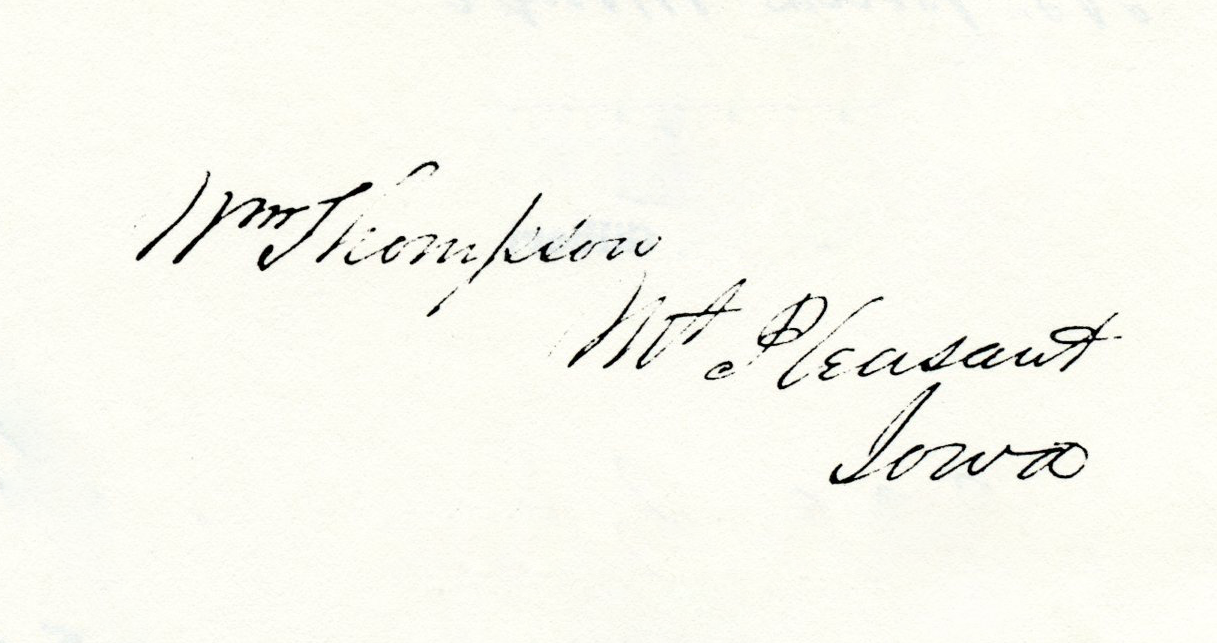 Wm Thompson
Mt Pleasant
Iowa